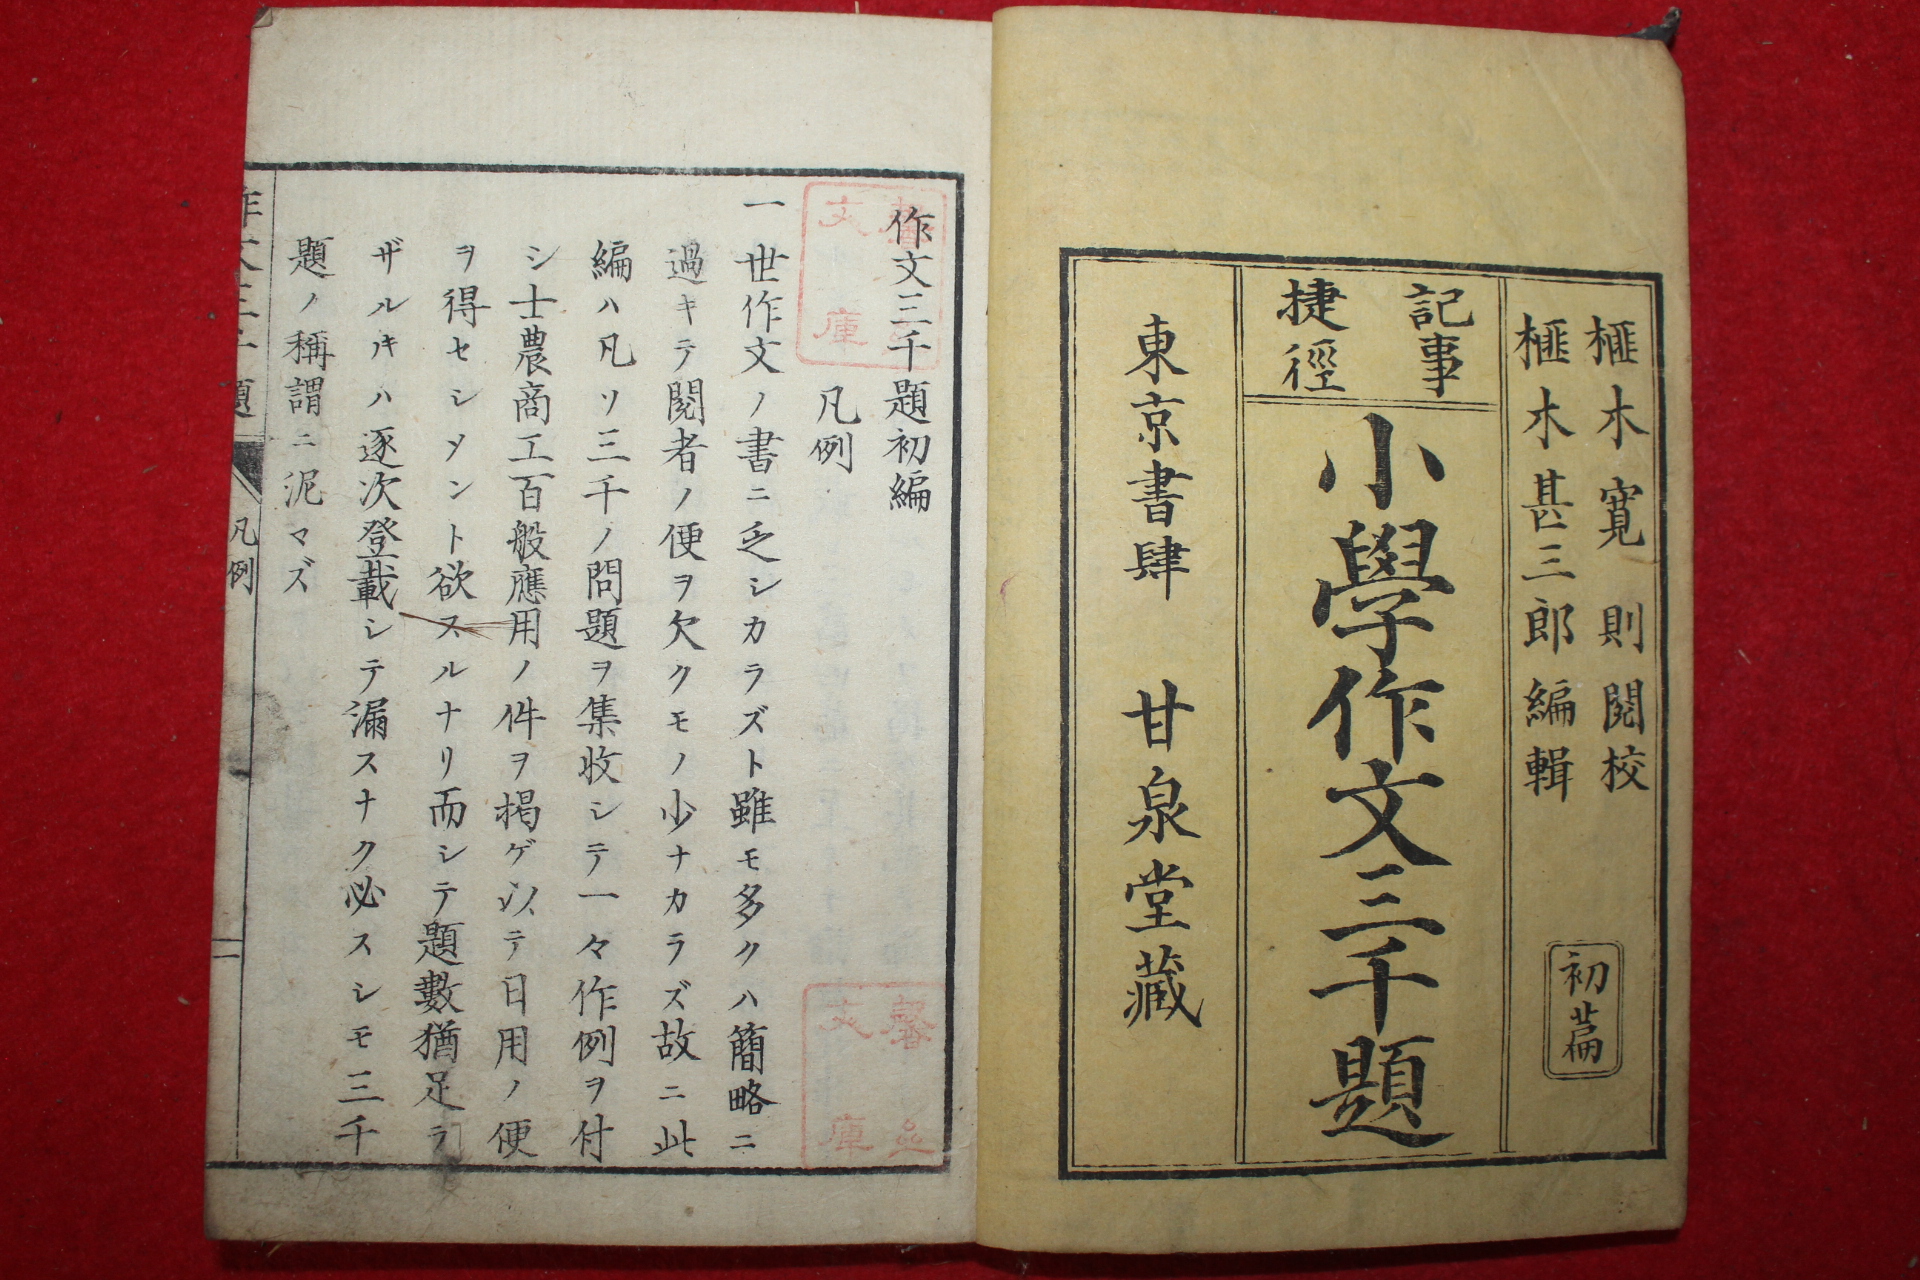 榧木寛則閲校
榧木甚三郎編輯
初篇
記事
捷徑
小學作文三千題
東京書肆 甘泉堂藏
作文三千題初編
凡例
一世作文ノ書ニ乏シカラズト雖モ多クハ簡略ニ
過キテ閲者ノ便ヲ欠クモノ少ナカラズ故ニ此
編ハ凡ソ三千ノ問題ヲ集收シテ一々作例ヲ付
シ士農商工百般應用ノ件ヲ掲ゲ以テ日用ノ便
ヲ得セシメント欲スルナリ而シテ題數猶足ラ
ザルキハ逐次登載シテ漏スナク必スシモ三千
題ノ稱謂ニ泥マズ
作文三千題
凡例
一
文庫
文庫